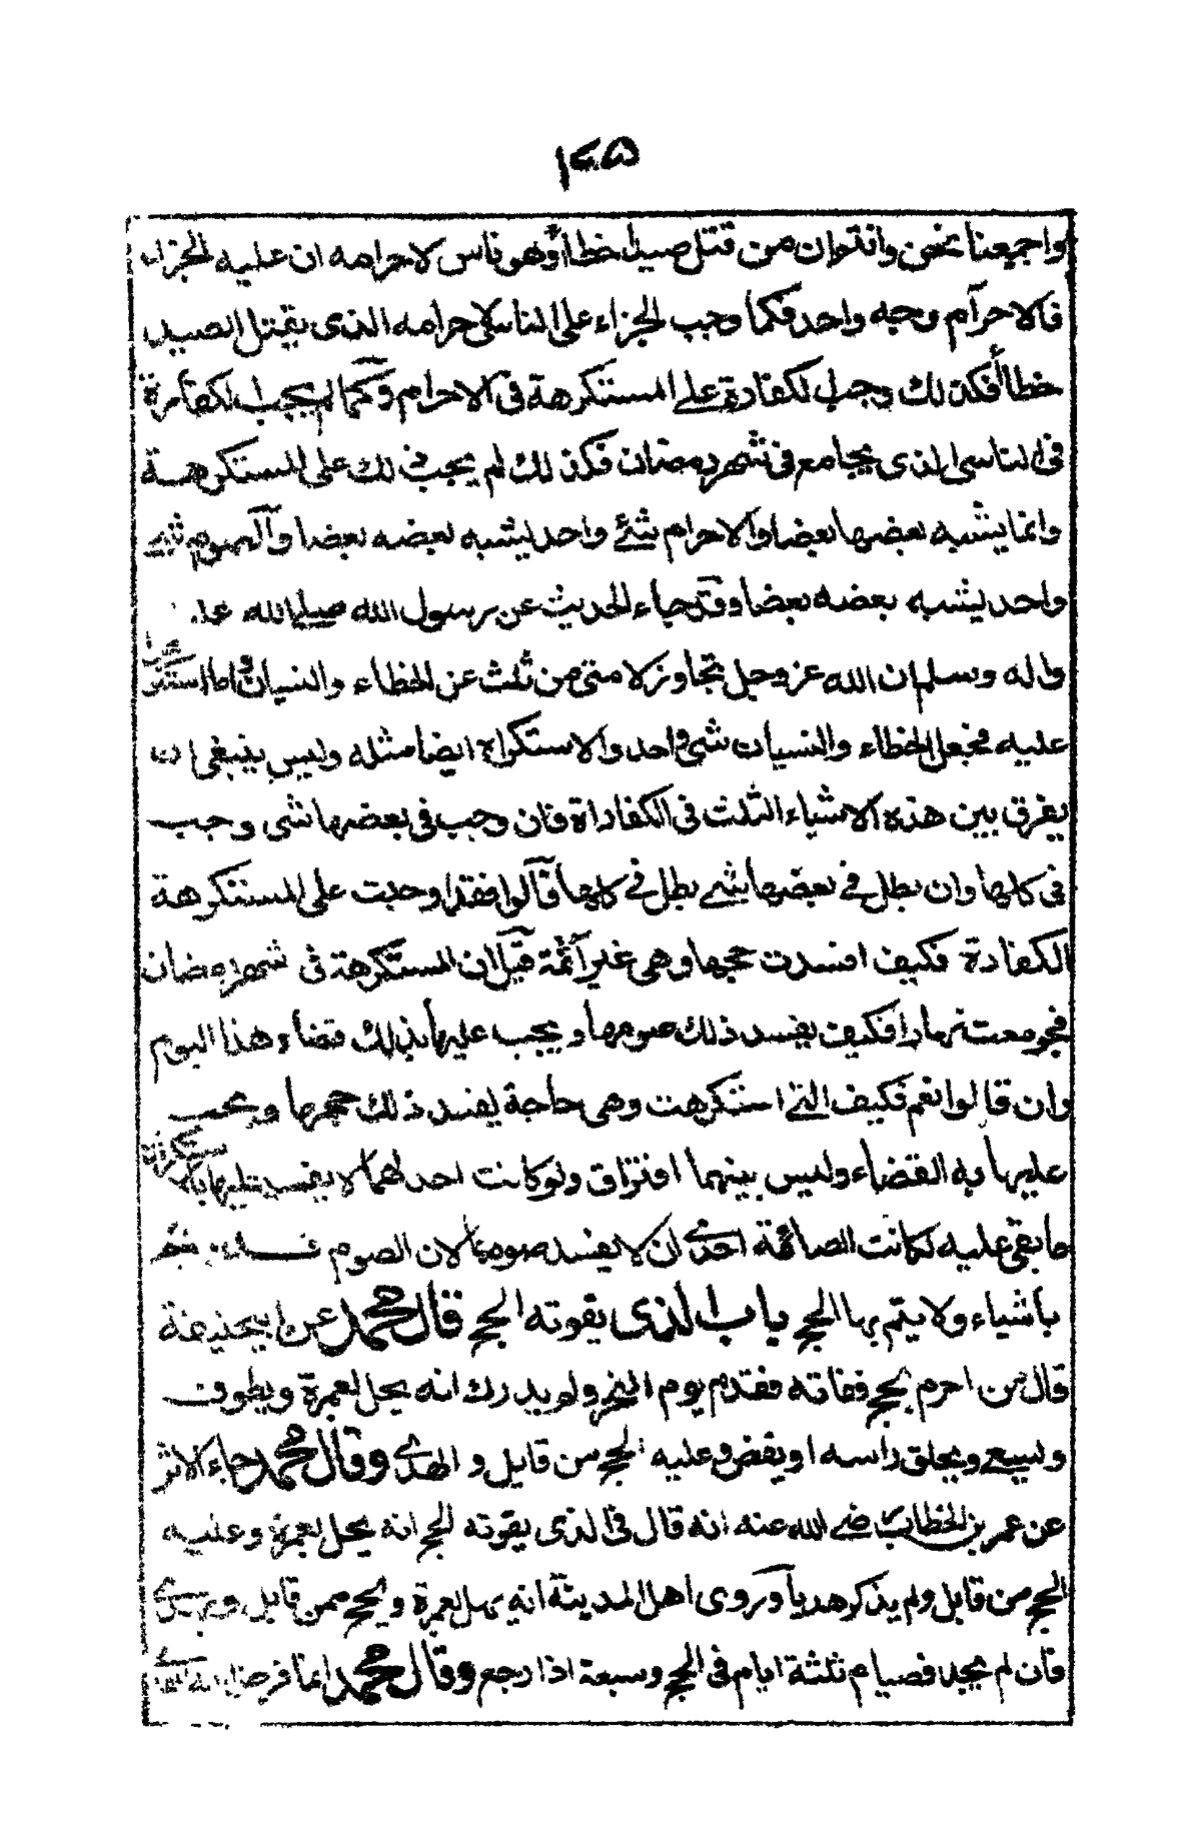 ١٤٥
واجمعنا نحن وانتم ان من قتل صيدا خطأ أوهو ناس لاحرامه ان عليه الجزاء
فالاحرام وجه واحد فكما وجب الجزاء على الناسى لاحرامه الذى يقتل الصيد
خطأ فكذلك وجب الكفارة على المستكرهة فى الاحرام وكما لم يجب الكفارة
فى الناسى الذى يجامع فى شهر رمضان فكذلك لم يجب ذلك على المستكرهة
وانما يشبه بعضها بعضا والاحرام شئ واحد يشبه بعضه بعضا والصوم شئ
واحد يشبه بعضه بعضا وقد جاء الحديث عن رسول الله صلى الله عليه
واله وسلم ان الله عز وجل تجاوز لامتى من ثلث عن الخطاء والنسيان وما استكرهوا
عليه فجعل الخطاء والنسيان شئ واحد والاستكراه ايضا مثله وليس ينبغى ان
يفرق بين هذه الاشياء الثلث فى الكفاراة فان وجب فى بعضها شى وجب
فى كلها وان بطل فى بعضها شئ بطل فى كلها قالوا فقد اوجبت على المستكرهة
الكفارة فكيف افسدت حجها وهى غير آثمة قيل ان المستكرهة فى شهر رمضان
فجومعت نهارا فكيف يفسد ذلك صومها ويجب عليها بذلك قضاء هذا اليوم
وان قالوا نعم فكيف التى استكرهت وهى حاجة يفسد ذلك حجها ويجب
عليها به القضاء وليس بينهما افتراق ولو كانت احدلهما لا يفسد عليها باستكراه
ما بقى عليه لكانت الصائمة احدى ان لا يفسد صومها لان الصوم
باشياء ولا يتم بها الحج باب الذى يفوته الحج قال محمد عن ابيحنيفة
قال من احرم بحج ففاته فقدم يوم النحر ولم يدرك انه يحل بعمرة ويطوف
ويسعى ويحلق راسه او يقصر وعليه الحج من قابل و الهدى وقال محمد جاء الاثر
عن عمر بن الخطاب رضى الله عنه انه قال فى الذى يفوته الحج انه يحل بعمرة وعليه
الحج من قابل ولم يذكر هديا وروى اهل المدينة انه يهل بعمرة ويحج من قابل ويهدى
فان لم يجد فصيام ثلثة ايام فى الحج وسبعة اذا رجع وقال محمد انما فرض الله